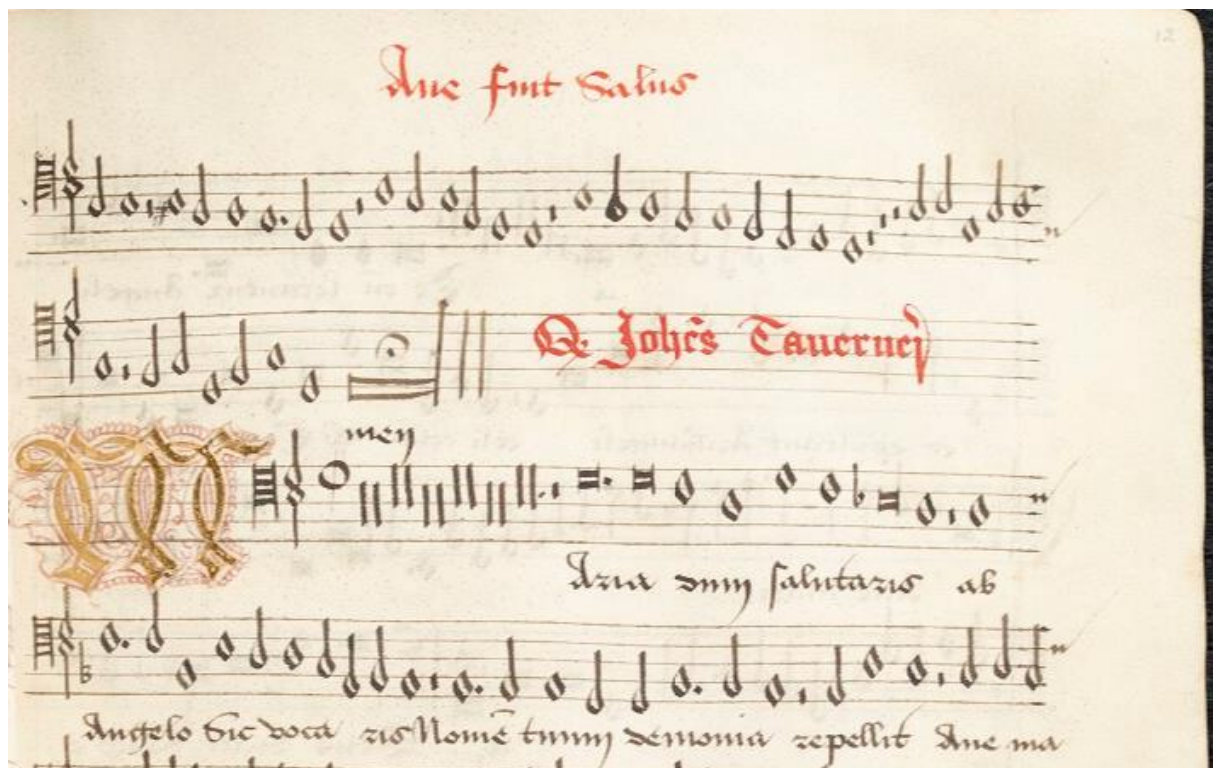 12
Aue fuit Salus
Q. Joh̄es Tauerner
men
MAria dum salutaris ab
Angelo Sic voca ris Nomē tuum demonia repellit Aue ma